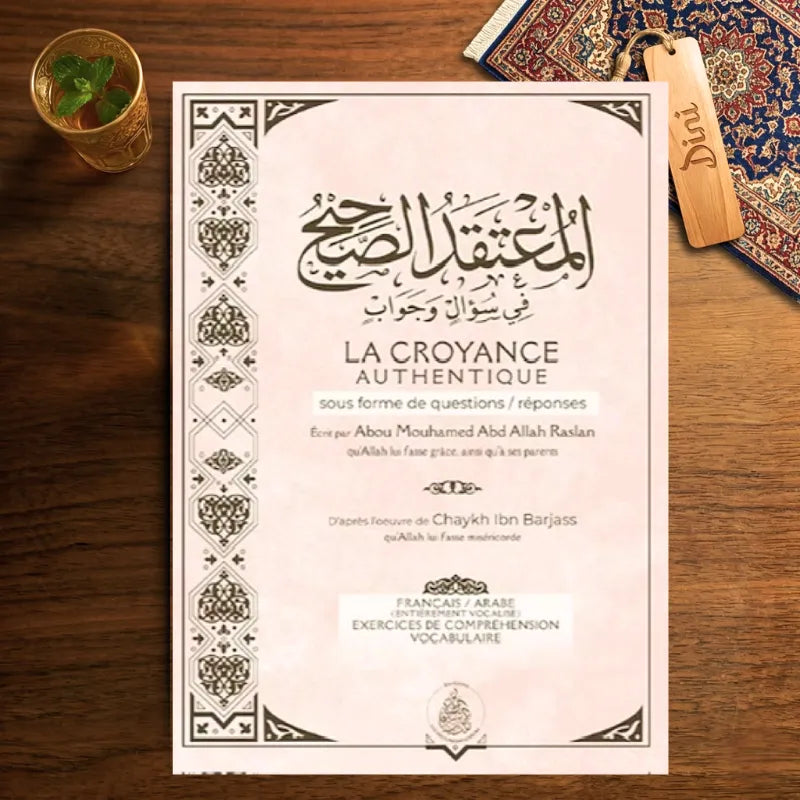 المُعْتَقَدُ الصَّحِيْحُ
فِي سُؤَالٍ وَجَوَابٍ
LA CROYANCE
AUTHENTIQUE
sous forme de questions / réponses
Écrit par Abou Mouhamed Abd Allah Raslan
qu'Allah lui fasse grâce, ainsi qu'à ses parents
D'après l'oeuvre de Chaykh Ibn Barjass
qu'Allah lui fasse miséricorde
FRANÇAIS / ARABE
(ENTIÈREMENT VOCALISÉ)
EXERCICES DE COMPRÉHENSION
VOCABULAIRE
Dini